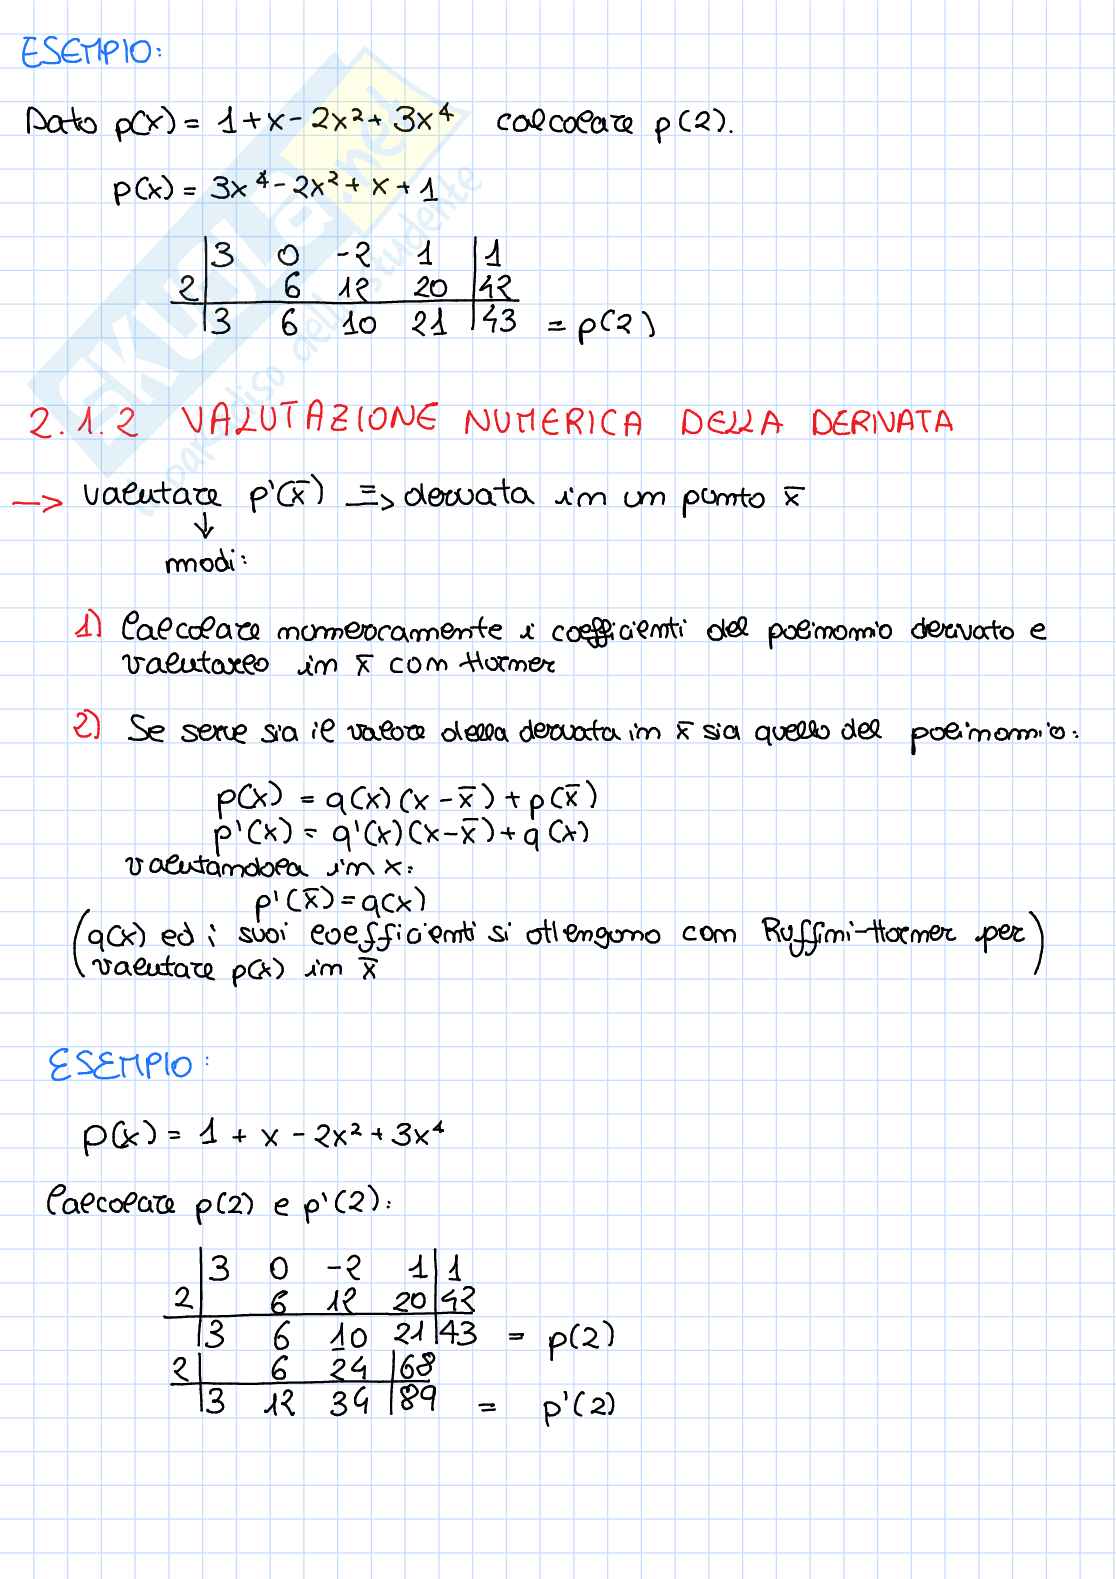 ESEMPIO:
Dato p(x) = 1+x-2x²+3x⁴ calcolare p(2).
p(x) = 3x⁴-2x²+x+1
3 0 -2 1 | 1
2 | 6 12 20 | 42
3 6 10 21 | 43 = p(2)
2.1.2 VALUTAZIONE NUMERICA DELLA DERIVATA
→ valutare p'(x̄) => derivata in un punto x̄
↓
modi:
1) Calcolare numericamente i coefficienti del polinomio derivato e
valutarlo in x̄ con Horner
2) Se serve sia il valore della derivata in x̄ sia quello del polinomio:
p(x) = q(x)(x-x̄)+p(x̄)
p'(x) = q'(x)(x-x̄)+q(x)
valutandola in x:
p'(x̄) = q(x)
(q(x) ed i suoi coefficienti si ottengono con Ruffini-Horner per
valutare p(x) in x̄)
ESEMPIO:
p(x) = 1 + x - 2x² + 3x⁴
Calcolare p(2) e p'(2):
3 0 -2 1 | 1
2 | 6 12 20 | 42
3 6 10 21 | 43 = p(2)
2 | 6 24 | 68
3 12 34 | 89 = p'(2)
SKUOLA.net
il paradiso dello studente